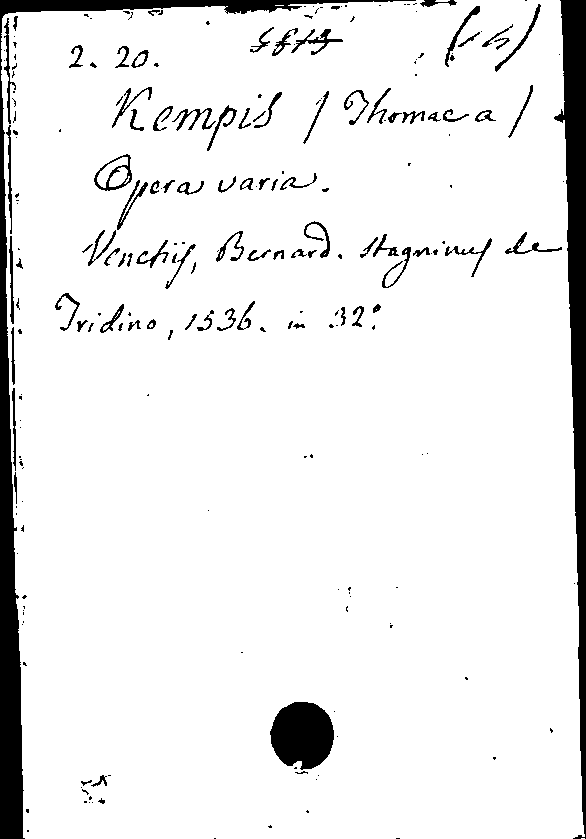 2. 20. 5813
Kempis / Thomae a /
Opera varia.
Venetijs, Bernard. Stagninus de
Tridino, 1536. in 32°.